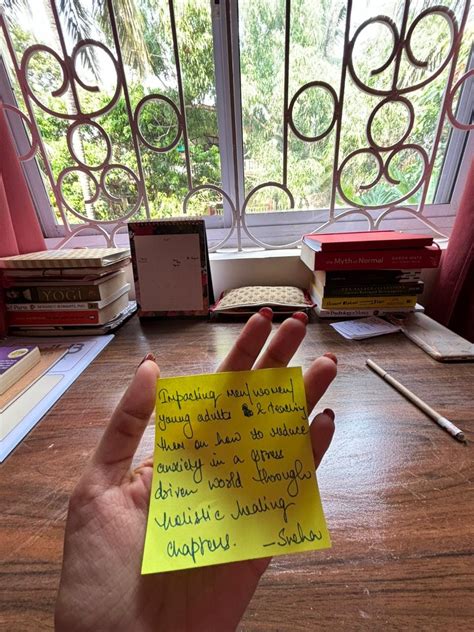 Impacting men/women/
young adults & teaching
them on how to reduce
anxiety in a stress
driven world through
holistic healing
chapters. -Sneha
YOGI
The MYTH of NORMAL